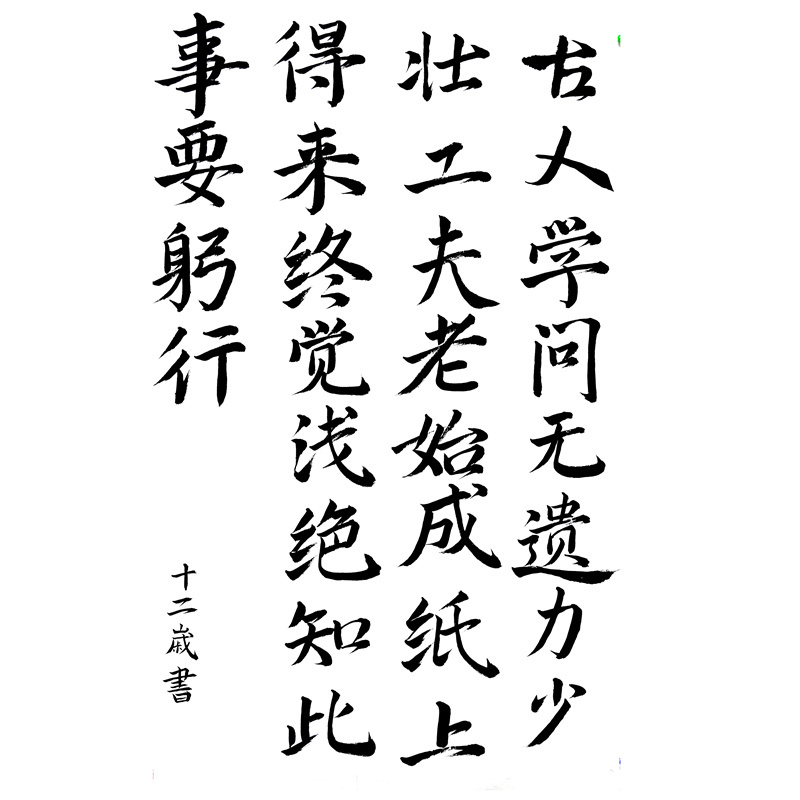 古人学问无遗力少
壮工夫老始成纸上
得来终觉浅绝知此
事要躬行
十二歳書